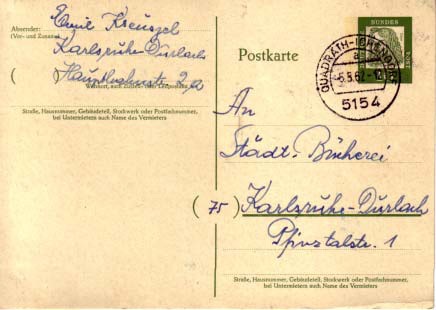 Absender: Emil Kreuszel
(Vor- und Zuname)
Karlsruhe-Durlach
( ) 2a
Wohnort, auch Zustell- oder Leitpostamt
Straße, Hausnummer, Gebäudeteil, Stockwerk oder Postfachnummer,
bei Untermietern auch Name des Vermieters
Postkarte
BUNDES
QUADRATH-ICHENDORF
a
-5.5.62-12
5154
An
Städt. Bücherei
(75) Karlsruhe-Durlach
Pfinztalstr. 1
Straße, Hausnummer, Gebäudeteil, Stockwerk oder Postfachnummer,
bei Untermietern auch Name des Vermieters